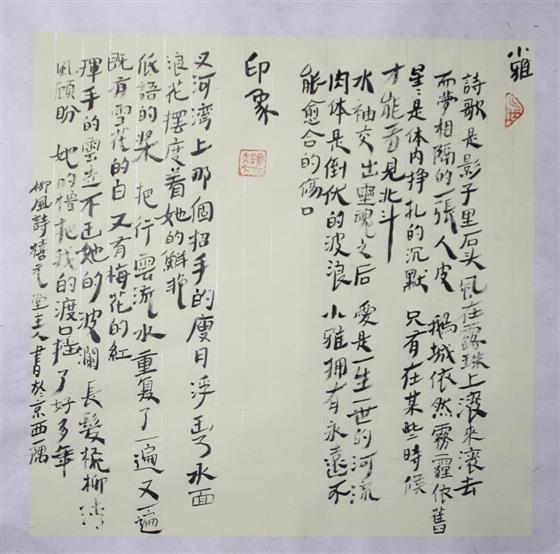 小雅
詩歌是影子里石头 風在露珠上滾來滾去
而夢相隔的一張人皮 鵝城依然霧霾依舊
星〻是体内挣扎的沉默 只有在某些時候
才能看見北斗
水袖交出靈魂之后 愛是一生一世的河流
肉体是倒伏的波浪 小雅拥有永遠不
能愈合的傷口
印象
又河灣上那個招手的瘦月浮出了水面
浪花擺度着她的鮮艳
低語的槳 把行雲流水重复了一遍又一遍
既有雪花的白又有梅花的紅
揮手的雲遮不住她的波瀾 長髮梳柳清
風顧盼 她的櫓把我的渡口摇了好多年
柳風詩禧元堂主人書於京西一隅